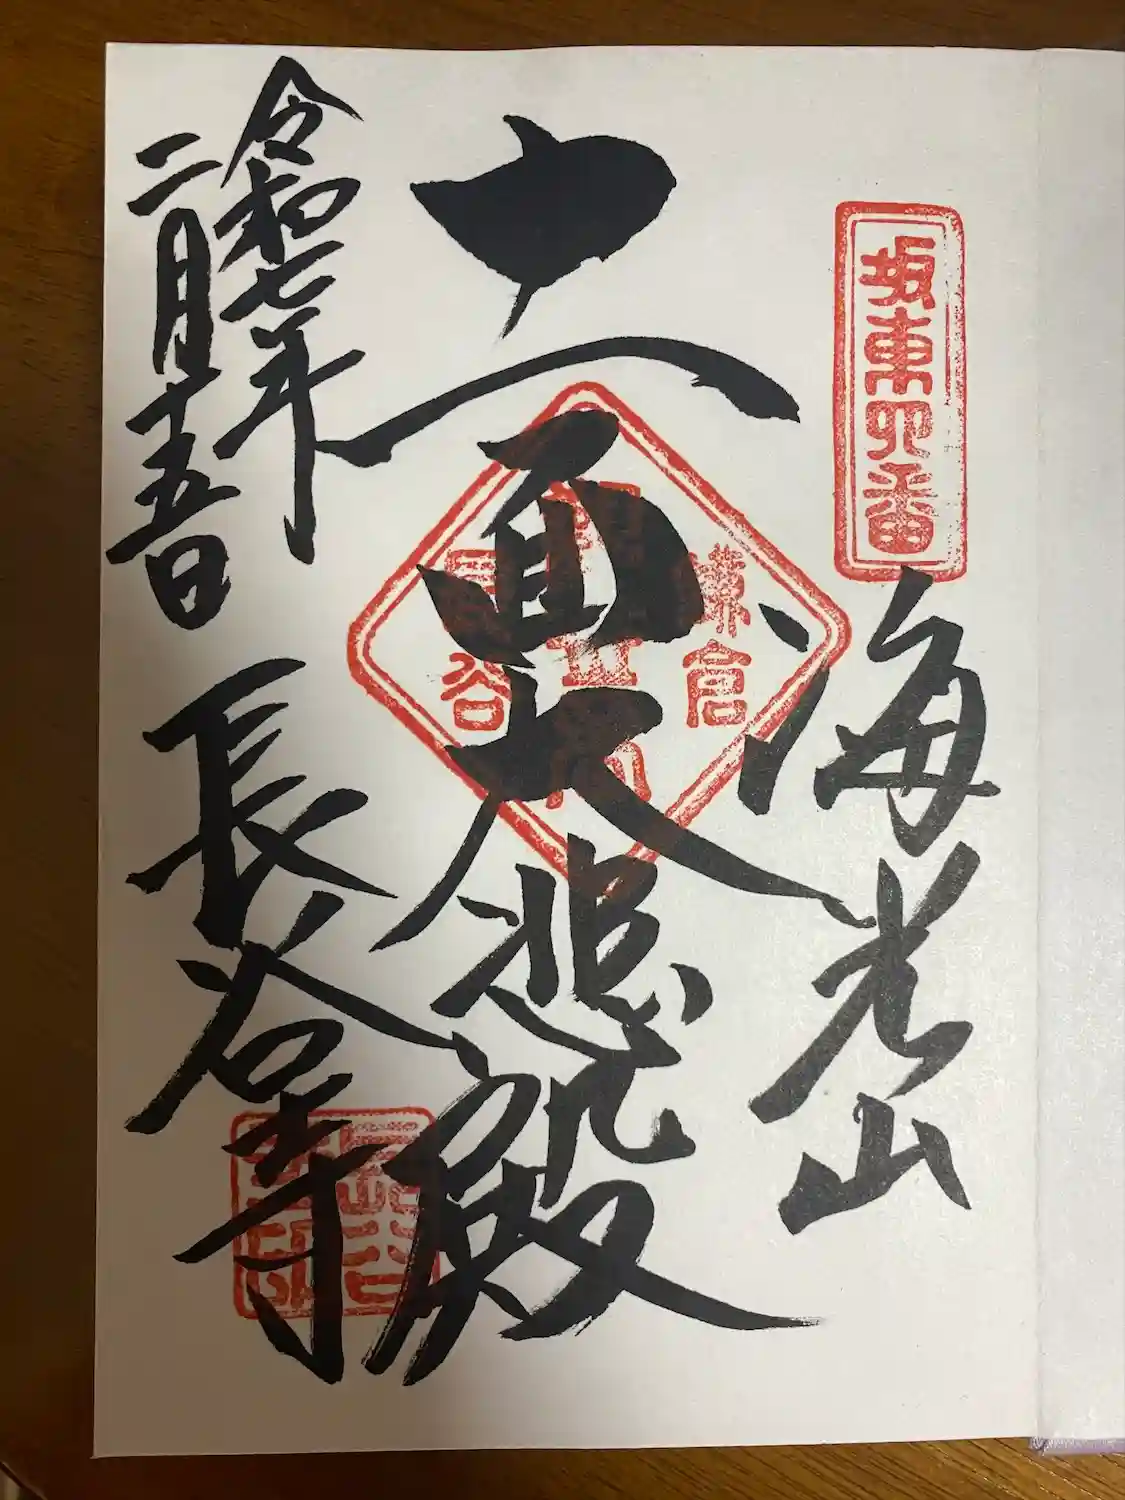 坂東四番
海光山
十一面大悲殿
鎌倉
長谷
令和七年
二月十五日
長谷寺